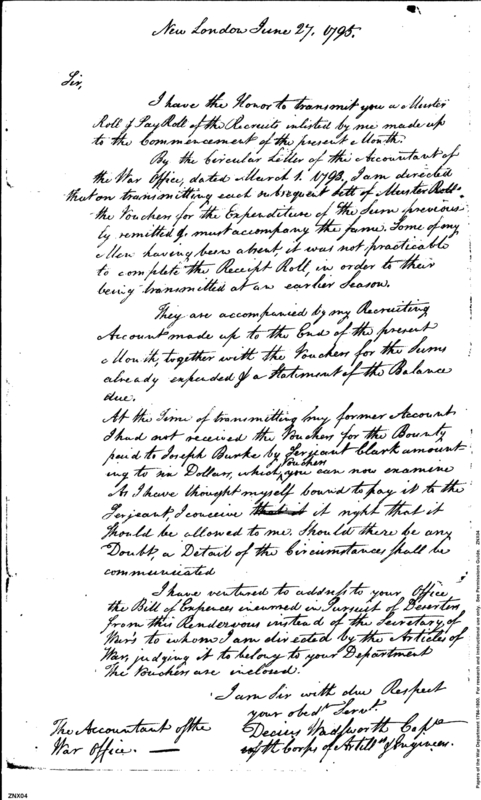 New London June 27. 1795.
Sir,
I have the Honor to transmit you a Muster
Roll & Pay Roll of the Recruits inlisted by me made up
to the Commencement of the present Month.
By the Circular Letter of the Accountant of
the War Office, dated March 1. 1793, I am directed
that on transmitting each subsequent sett of Muster Rolls
the Vouchers for the Expenditure of the Sum previous-
ly remitted &c must accompany the same. Some of my
Men having been absent, it was not practicable
to complete the Receipt Roll, in order to their
being transmitted at an earlier Season.
They are accompanied by my Recruiting
Account made up to the End of the present
Month, together with the Vouchers for the Sums
already expended & a Statement of the Balance
due.
At the Time of transmitting my former Account
I had not received the Vouchers for the Bounty
paid to Joseph Burke by Serjeant Clark amount-
ing to six Dollars, which Vouchers you can now examine
As I have thought myself bound to pay it to the
Serjeant, I conceive that it it right that it
should be allowed to me. Should there be any
Doubt, a Detail of the Circumstances shall be
communicated
I have ventured to address to your Office
the Bill of Expences incurred in Pursuit of Deserters
from this Rendezvous instead of the Secretary of
War's to whom I am directed by the Articles of
War, judging it to belong to your Department
The Vouchers are inclosed.
I am Sir with due Respect
your obedt. Servt.
Decius Wadsworth Capt.
in the Corps of Artills. & Engineers.
The Accountant of the
War Office. —
ZNX04
Papers of the War Department 1784-1800. For research and instructional use only. See Permissions Guide. ZNX04